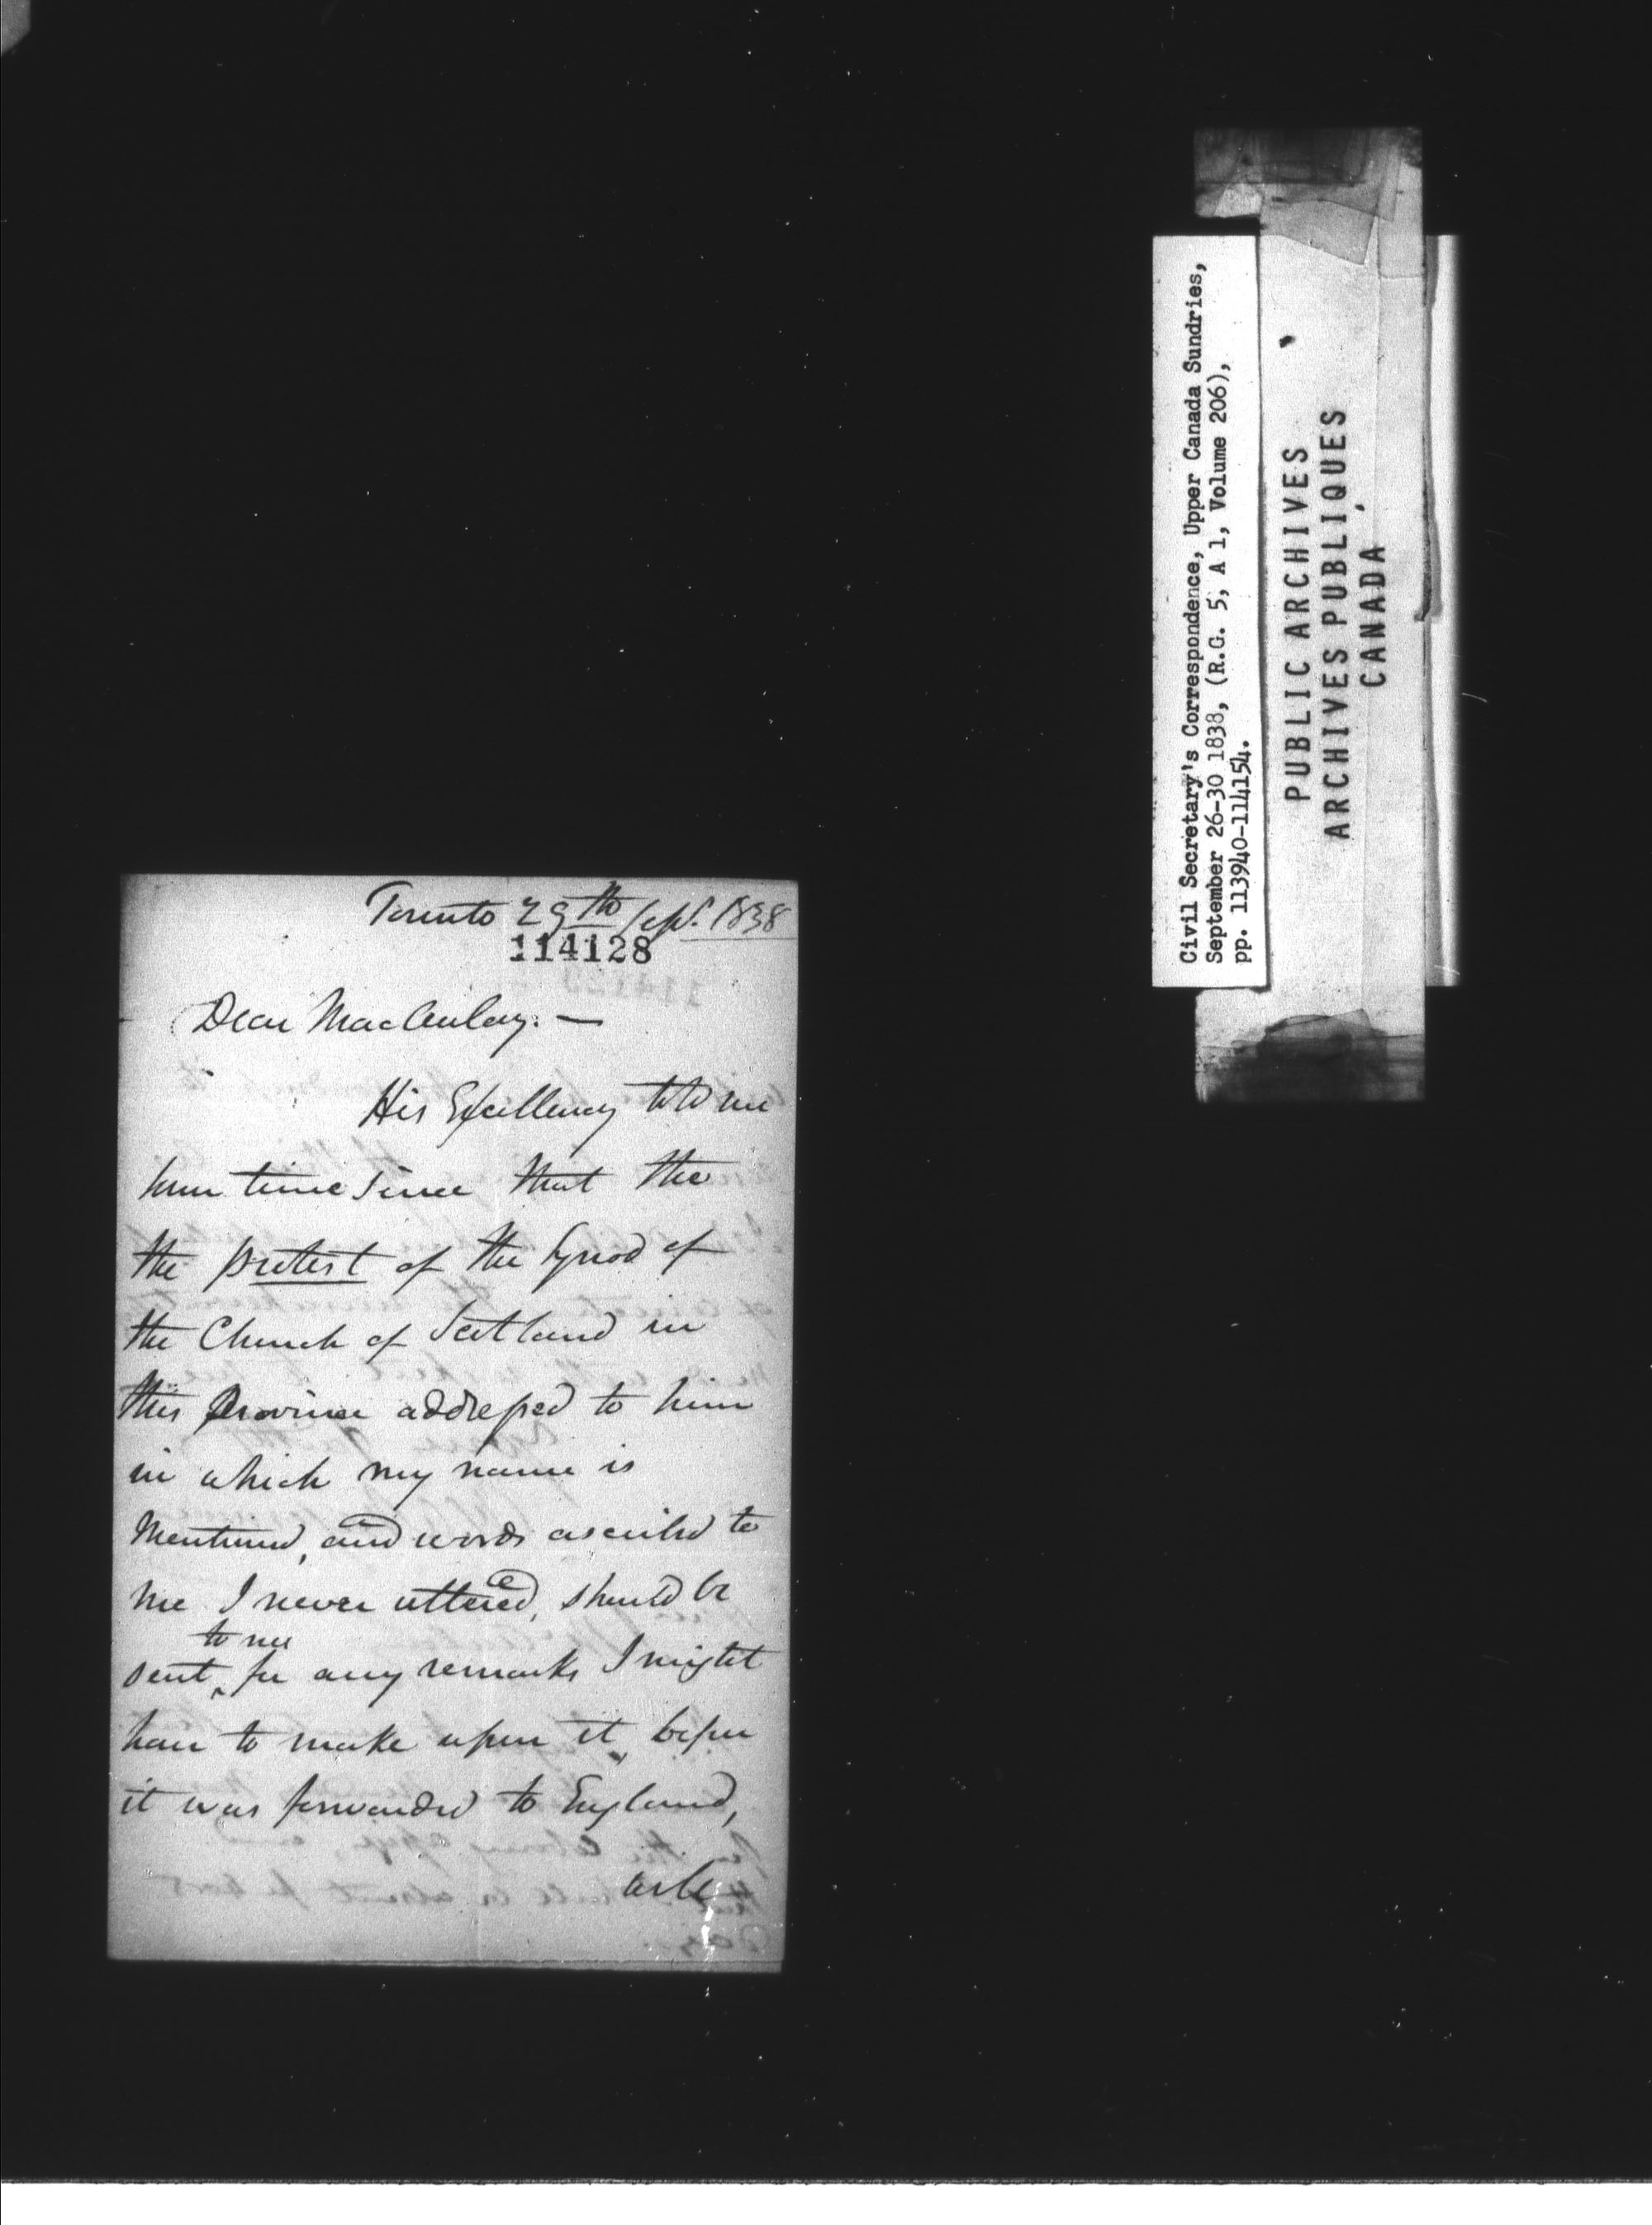 Toronto 29th Sept. 1838
114128
Dear Macaulay. —
His Excellency told me
some time since that the
the protest of the Synod of
the Church of Scotland in
this Province addressed to him
in which my name is
Mentioned, and words ascribed to
me I never uttered, should be
to me
sent, for any remarks I might
have to make upon it, before
it was forwarded to England,
Civil Secretary's Correspondence, Upper Canada Sundries,
September 26-30 1838, (R.G. 5, A 1, Volume 206),
pp. 113940-114154.
PUBLIC ARCHIVES
ARCHIVES PUBLIQUES
CANADA